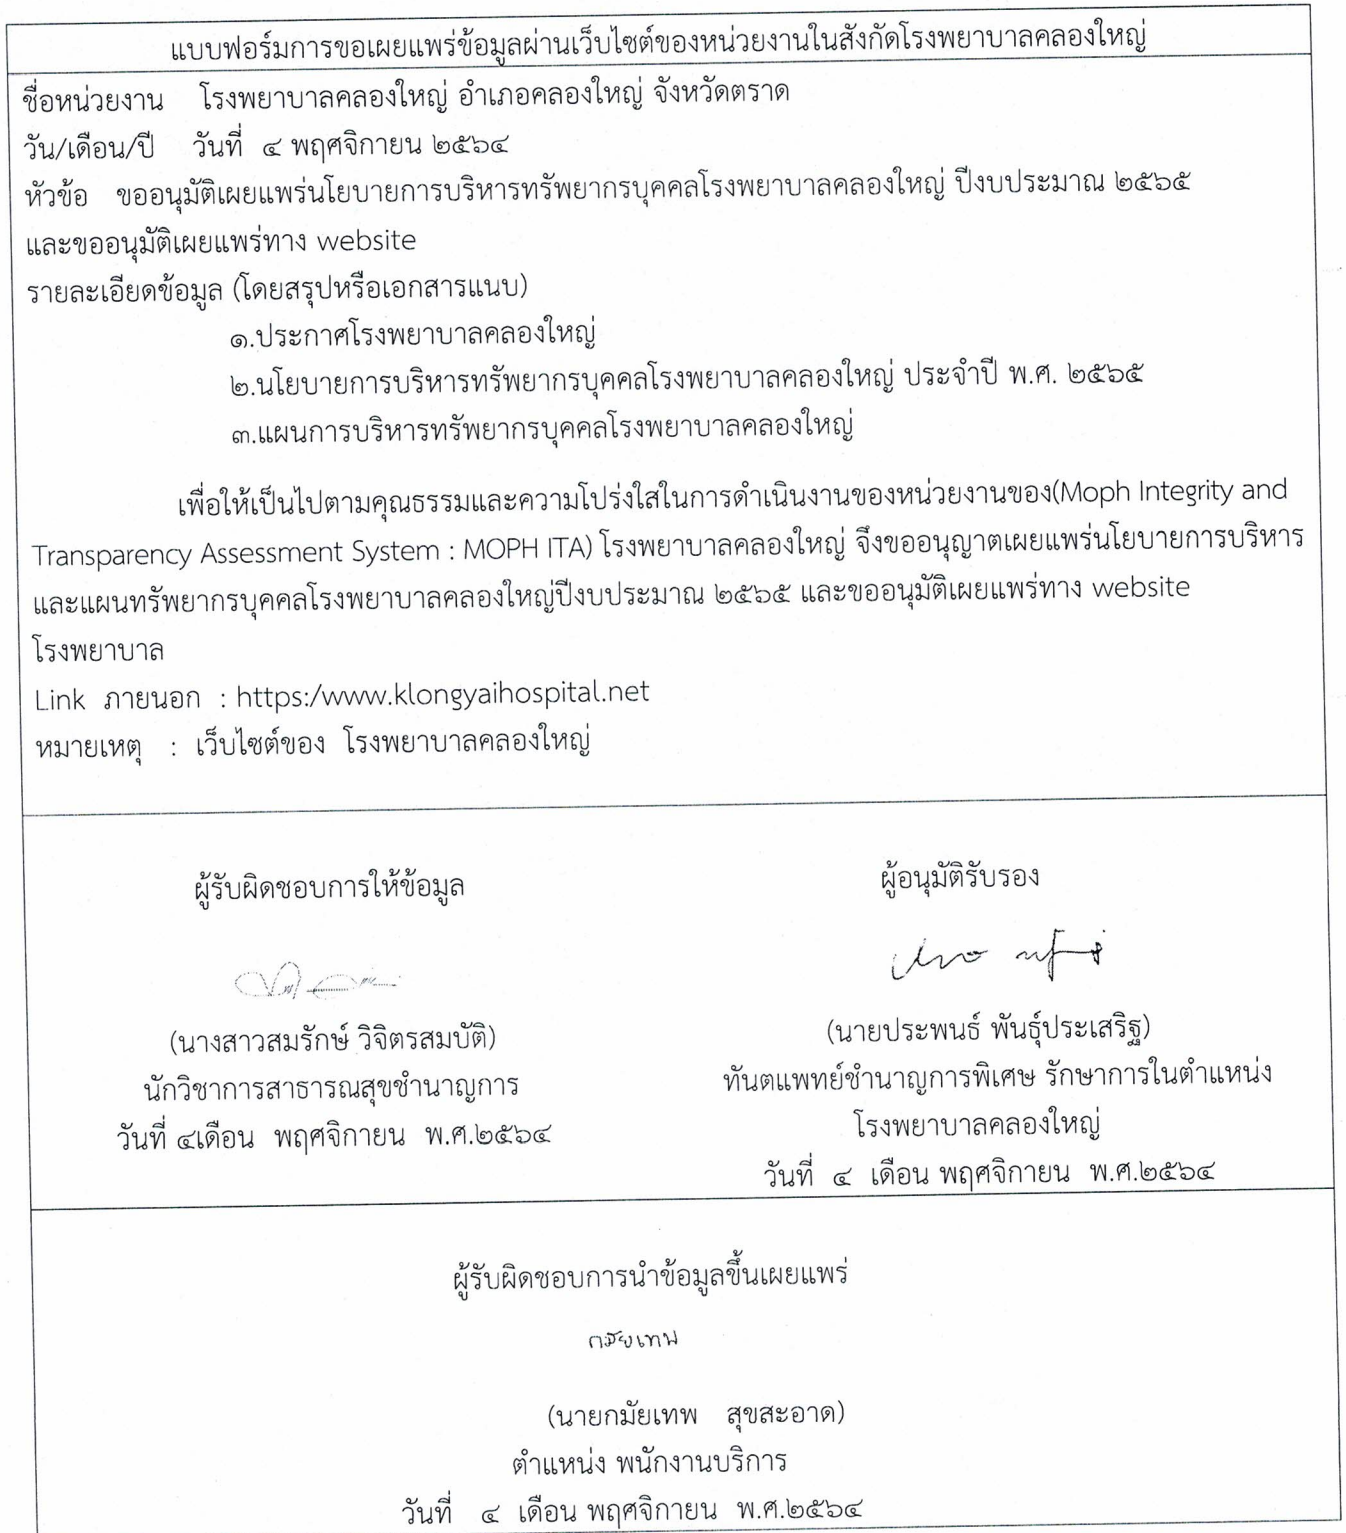 แบบฟอร์มการขอเผยแพร่ข้อมูลผ่านเว็บไซต์ของหน่วยงานในสังกัดโรงพยาบาลคลองใหญ่
ชื่อหน่วยงาน โรงพยาบาลคลองใหญ่ อำเภอคลองใหญ่ จังหวัดตราด
วัน/เดือน/ปี วันที่ ๔ พฤศจิกายน ๒๕๖๔
หัวข้อ ขออนุมัติเผยแพร่นโยบายการบริหารทรัพยากรบุคคลโรงพยาบาลคลองใหญ่ ปีงบประมาณ ๒๕๖๕
และขออนุมัติเผยแพร่ทาง website
รายละเอียดข้อมูล (โดยสรุปหรือเอกสารแนบ)
๑.ประกาศโรงพยาบาลคลองใหญ่
๒.นโยบายการบริหารทรัพยากรบุคคลโรงพยาบาลคลองใหญ่ ประจำปี พ.ศ. ๒๕๖๕
๓.แผนการบริหารทรัพยากรบุคคลโรงพยาบาลคลองใหญ่
เพื่อให้เป็นไปตามคุณธรรมและความโปร่งใสในการดำเนินงานของหน่วยงานของ(Moph Integrity and
Transparency Assessment System : MOPH ITA) โรงพยาบาลคลองใหญ่ จึงขออนุญาตเผยแพร่นโยบายการบริหาร
และแผนทรัพยากรบุคคลโรงพยาบาลคลองใหญ่ปีงบประมาณ ๒๕๖๕ และขออนุมัติเผยแพร่ทาง website
โรงพยาบาล
Link ภายนอก : https:/www.klongyaihospital.net
หมายเหตุ : เว็บไซต์ของ โรงพยาบาลคลองใหญ่
ผู้รับผิดชอบการให้ข้อมูล
(นางสาวสมรักษ์ วิจิตรสมบัติ)
นักวิชาการสาธารณสุขชำนาญการ
วันที่ ๔เดือน พฤศจิกายน พ.ศ.๒๕๖๔
ผู้อนุมัติรับรอง
(นายประพนธ์ พันธุ์ประเสริฐ)
ทันตแพทย์ชำนาญการพิเศษ รักษาการในตำแหน่ง
โรงพยาบาลคลองใหญ่
วันที่ ๔ เดือน พฤศจิกายน พ.ศ.๒๕๖๔
ผู้รับผิดชอบการนำข้อมูลขึ้นเผยแพร่
กมัยเทพ
(นายกมัยเทพ สุขสะอาด)
ตำแหน่ง พนักงานบริการ
วันที่ ๔ เดือน พฤศจิกายน พ.ศ.๒๕๖๔